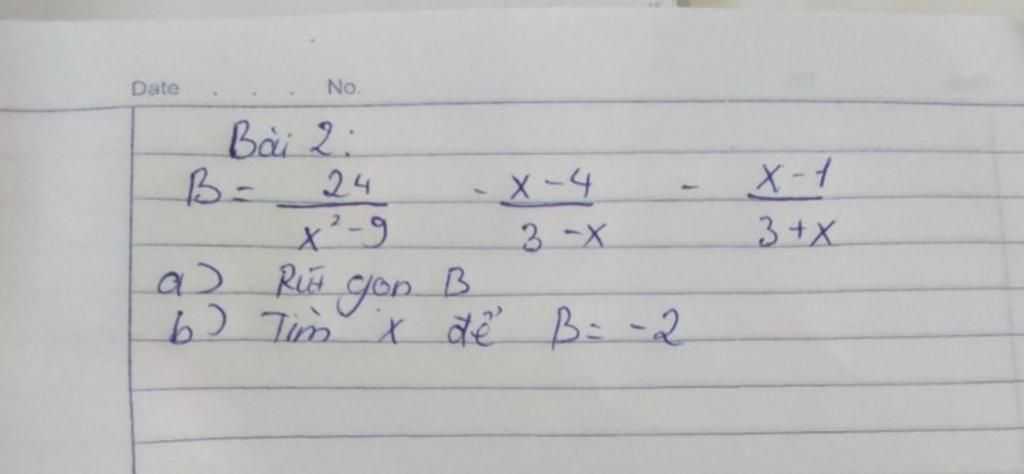 Date . . . No.
Bài 2:
B = \frac{24}{x^2-9} - \frac{x-4}{3-x} - \frac{x-1}{3+x}
a) Rút gọn B
b) Tìm x để B = -2